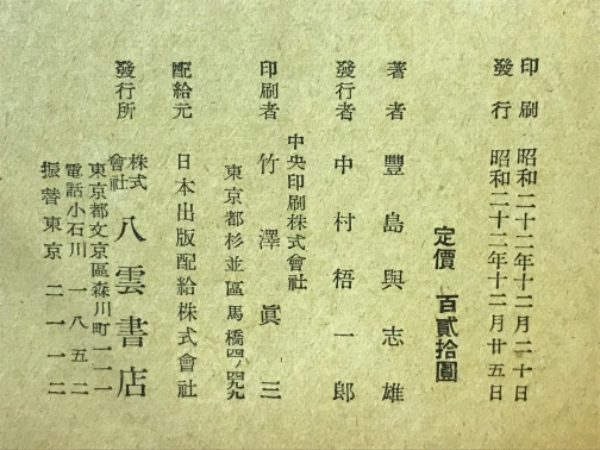 印刷 昭和二十二年十二月二十日
發行 昭和二十二年十二月廿五日
定價 百貳拾圓
著者 豐島與志雄
發行者 中村梧一郎
中央印刷株式會社
印刷者 竹澤眞三
東京都杉並區馬橋四ノ四九九
配給元 日本出版配給株式會社
發行所 株式會社 八雲書店
東京都文京區森川町一一一
電話小石川一八五二
振替東京二一一二